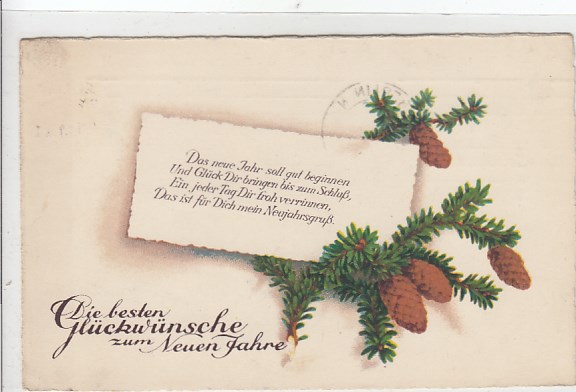 Das neue Jahr soll gut beginnen
Und Glück Dir bringen bis zum Schluß,
Ein jeder Tag Dir froh verrinnen,
Das ist für Dich mein Neujahrsgruß.
Die besten
Glückwünsche
zum Neuen Jahre